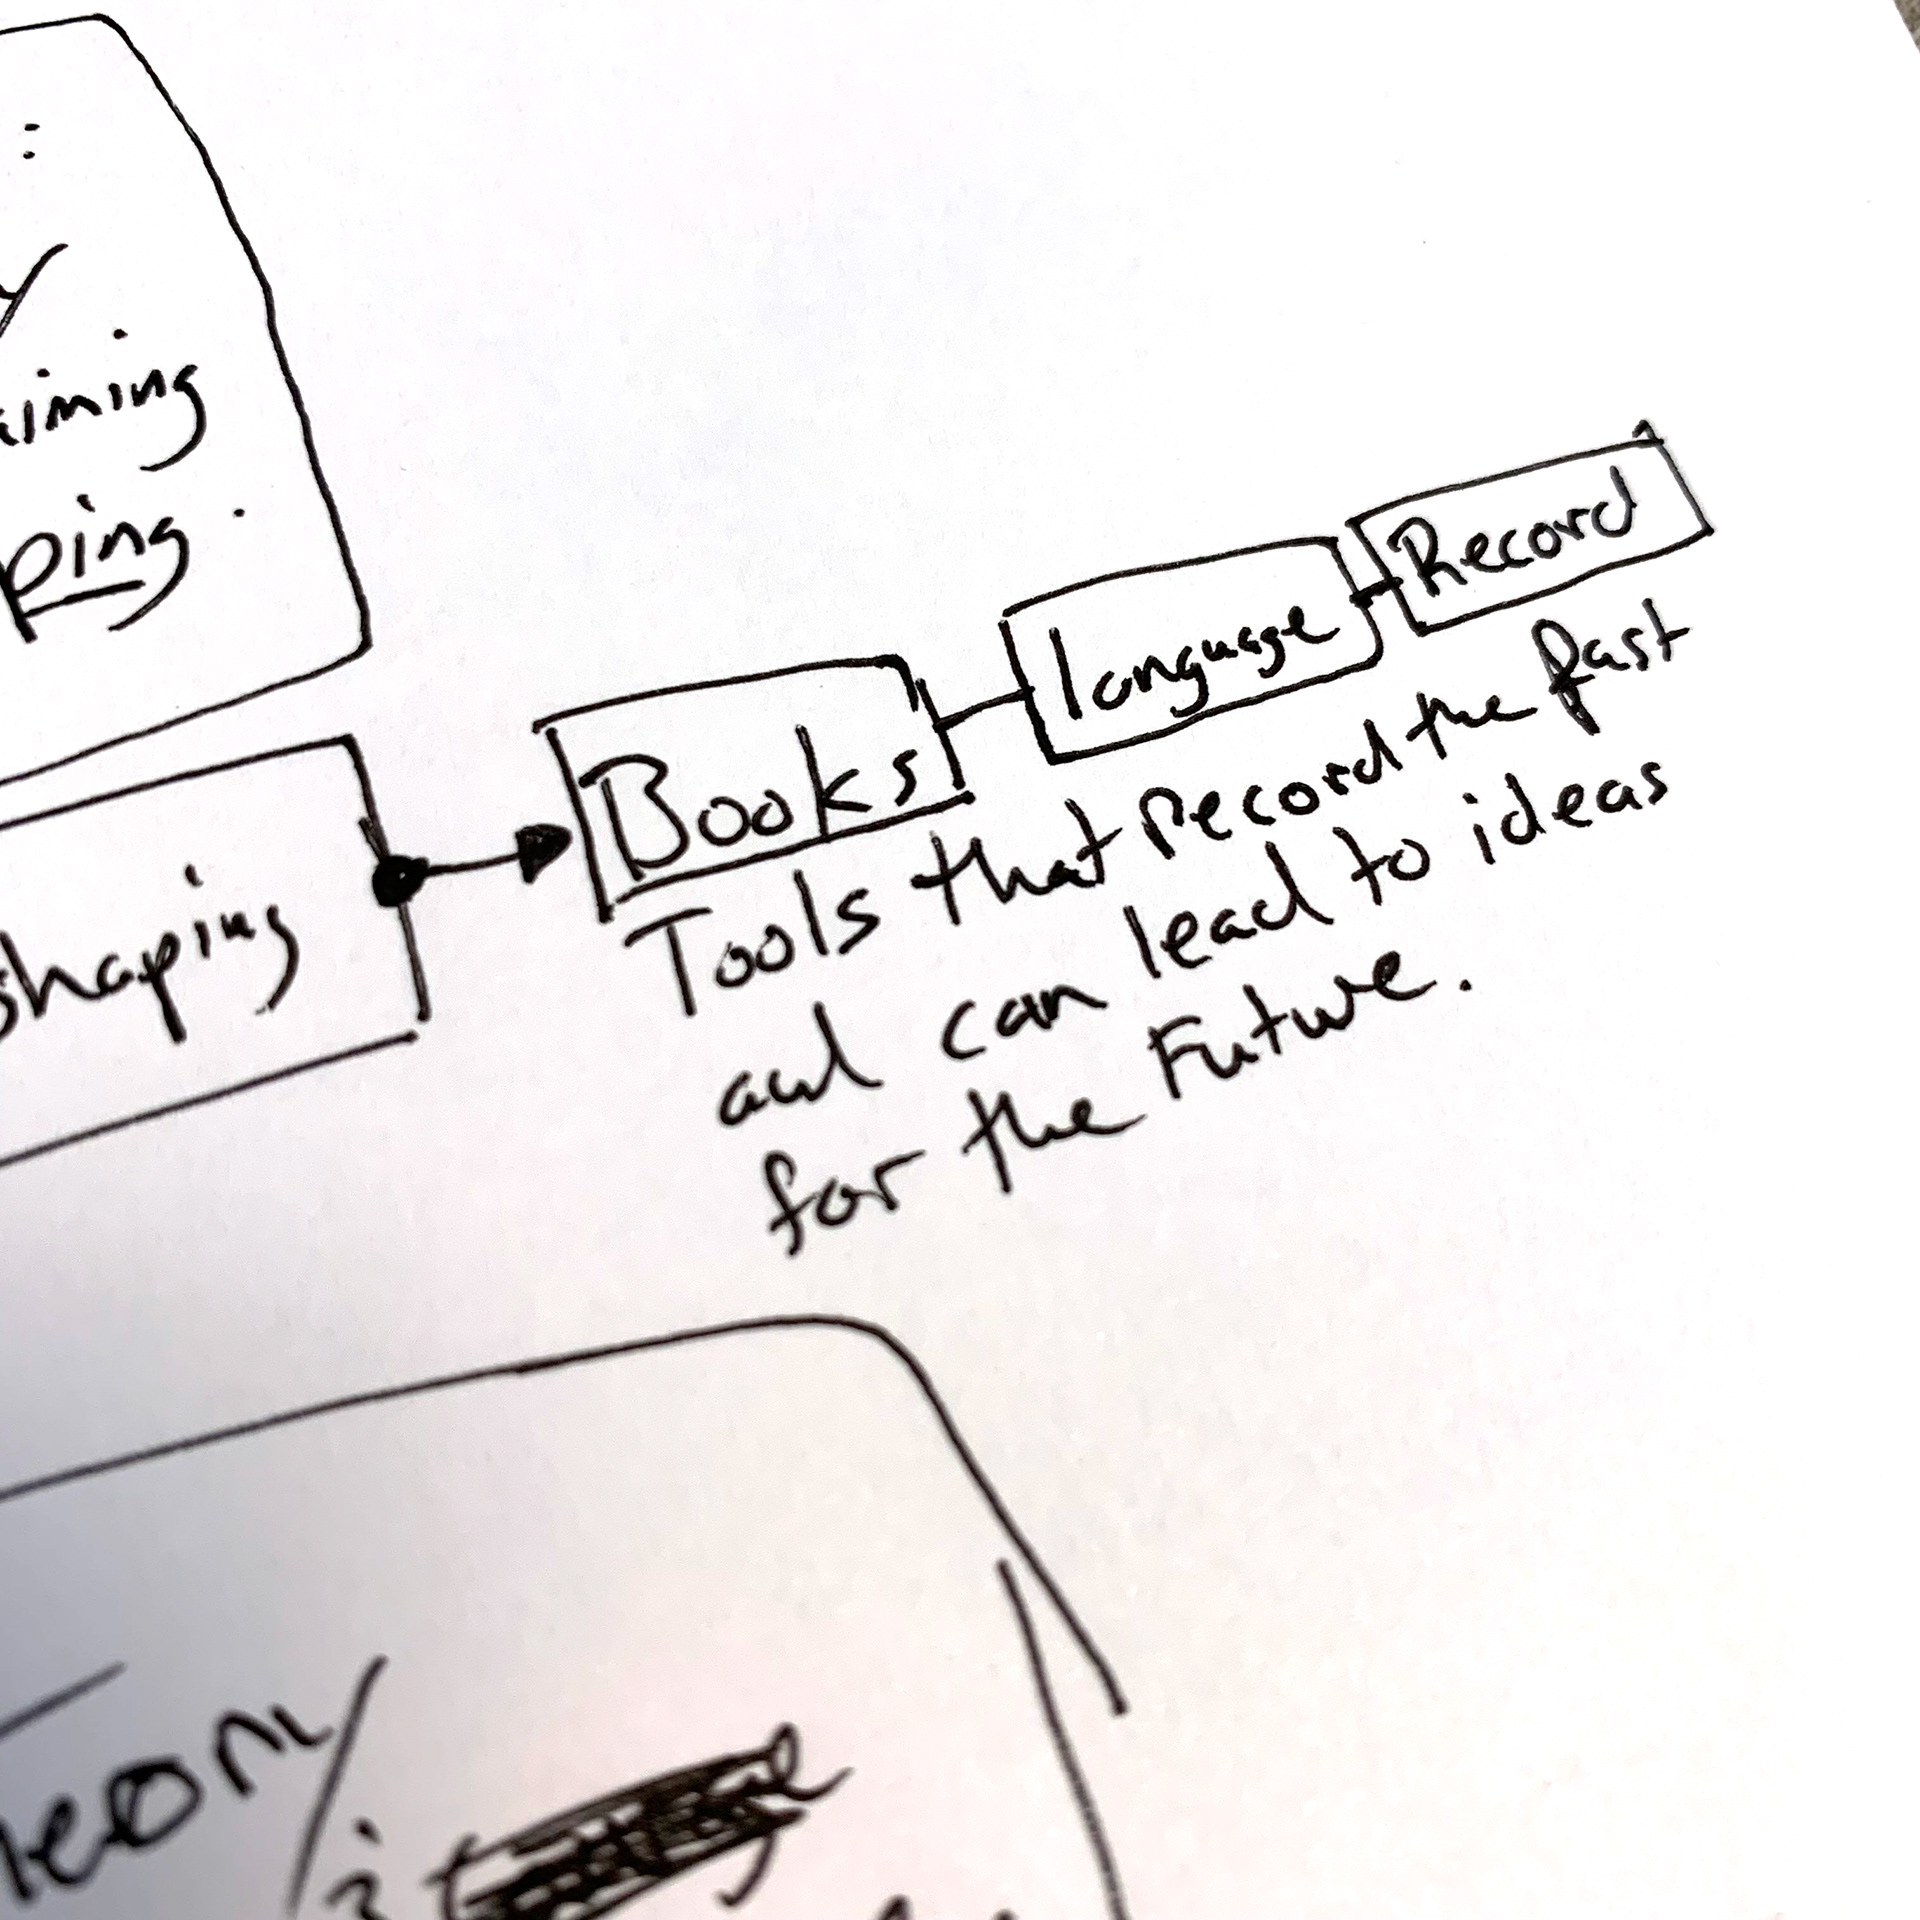 :
ping.
shaping
Books
language
Record
Tools that record the past
and can lead to ideas
for the Future.